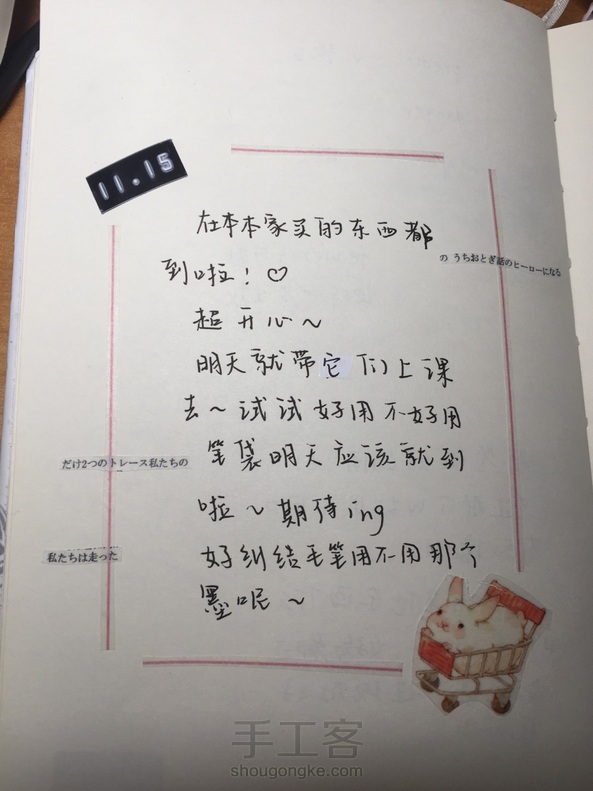 11.15
在本本家买的东西都
の うちおとぎ話のヒーローになる
到啦！♡
超开心～
明天就带它们上课
去～试试好用不好用
だけ2つのトレース私たちの
笔袋明天应该就到
啦～期待ing
私たちは走った
好纠结毛笔用不用那个
墨呢～
手工客
shougongke.com